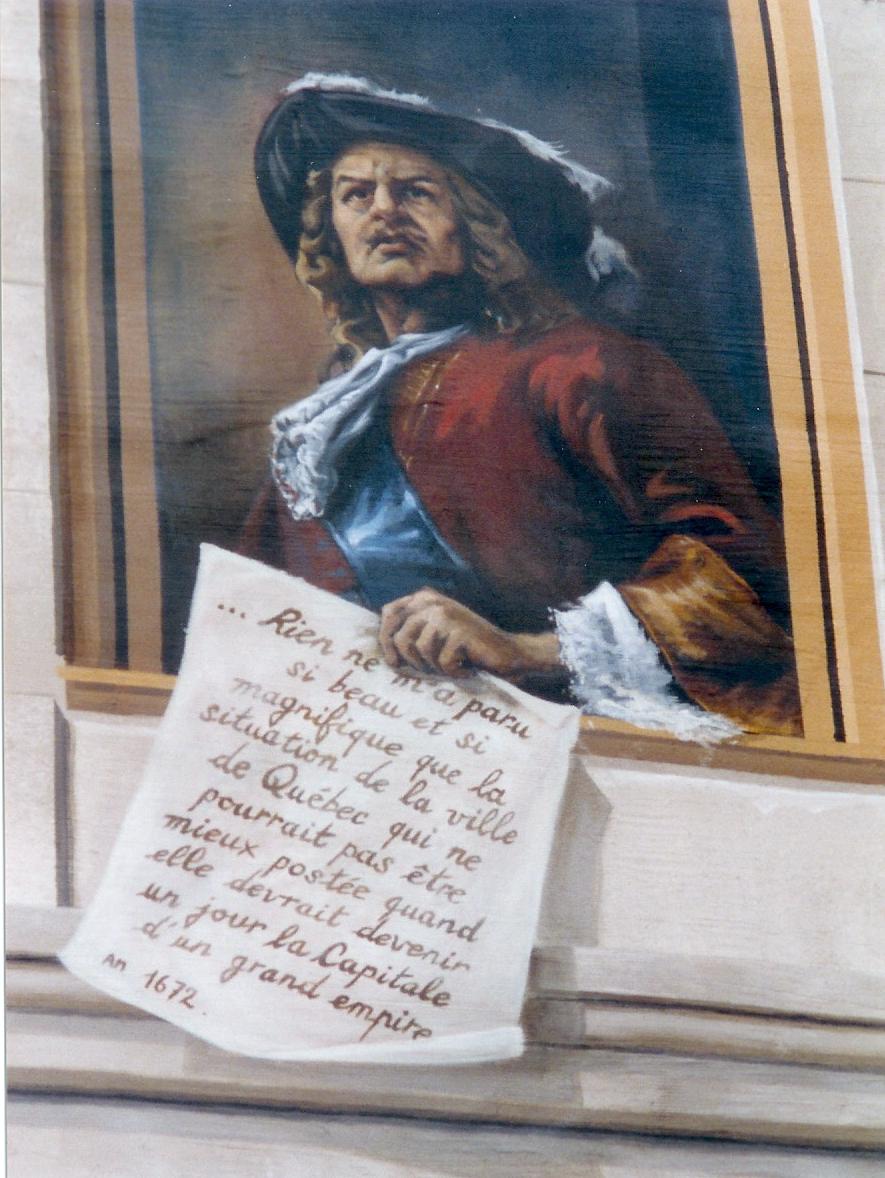 ... Rien ne m'a paru
si beau et si
magnifique que la
situation de la ville
de Québec qui ne
pourrait pas être
mieux postée quand
elle devrait devenir
un jour la Capitale
d'un grand empire
An 1672.